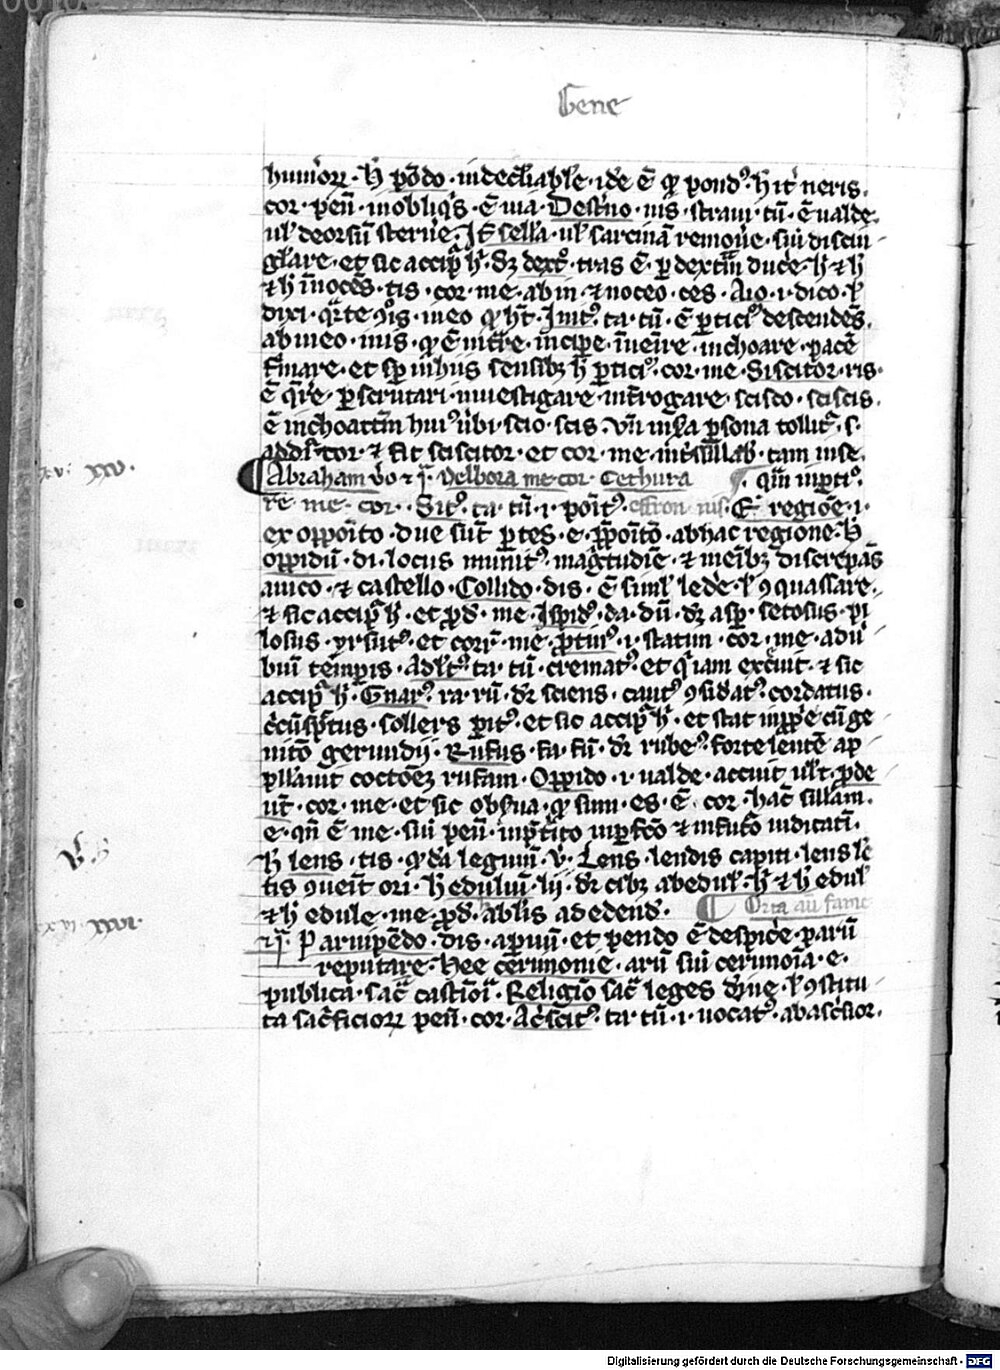 Gene
humorꝝ · h̄ põdo · indecliabłe · idē ē qꝫ pondꝰ · h̄ itͥ neris ·
cor · peñ · in obliqͥs · ē uia · Destͥno · nis · straui · tū · ē ualde
ul deorsū sterñe · It̄ sella · ul sarcinā remouē · siui discin
glare · et sic accipͥ h̄ · Sꝫ dextꝰ · tras ē · ꝑ dextͣm ducē · h̄ ⁊ h̄
⁊ h̄ ĩnocēs · tis · cor · me · ab in · ⁊ noceo · ces · Aio · i · dico · ł
dixi · qͣrte ꝯiũg · ineo qꝫ h̄t · Initꝰ · ta · tū · ē ꝑticiꝰ descendēs ·
ab ineo · inis · qꝫ ē intͣre · incipe · ĩuenīre · inchoare · pacē
firmare · et sp̄ in hiis sensibꝫ h̄ ꝑticiꝰ · cor · me · Siscitor · ris ·
ē qͥre · ꝑscrutari · inuestigare · intͬrogare · scisco · sciscis ·
ē inchoatiū huiꝰ ūbi · scio · scis · vñ in pͥa ꝑsona tollitͬ · s ·
additͬ · cor · ⁊ fit sciscitor · et cor · me · int̄ sillab · tam in se ·
xv · xxv · Abraham v̊o ⁊ c̄ · Delbora me cor · Cethura ¶ · qn̄ in ꝑtiꝰ
re me · cor · Sitꝰ · ta · tū · i · põitꝰ · effron · nis · E · regiōe · i ·
ex opp̄oito · due sūt ꝑtes · e · p̄põito · ab hac regione · h̄
oppidū · di · locus munitꝰ · magͥtudīe · ⁊ meĩbꝫ discrepās
a uico · ⁊ castello · Collido · dis · ē simł ledē · ł ꝯquassare ·
⁊ sic accipͥ h̄ · et ꝓd · me · Ispidꝰ · da · dū · dͬ aspͬ · setosus · pi
losus · yrsutꝰ · et corrͥ · me · ꝓtinꝰ · i · statim · cor · me · adū
biū tēmpris · Adłtꝰ · ta · tū · crematꝰ · et qͥ iam exc̄uit · ⁊ sic
accipͥ h̄ · Gnarꝰ · ra · rū · dͬ sciens · cautꝰ ꝯsidatꝰ · cordatus ·
c̄cūsp̄tus · sollers · pitꝰ · et sic accipͥ h̄ · et stat inꝓpͥe cū ge
nitō gerundij · Rufus · fa · fū · dͬ rubeꝰ · forte lentē ap
pllauit coctōeꝫ rufam · Oppido · i · ualde · acuit ultͣ · ꝓde
ut · cor · me · et sic obs̄ua · qꝫ sum · es · ē · cor · hac sillam ·
e · qn̄ ē me · sui peñ · in p̄tͥto inꝑfc̄o ⁊ in futͬo indicatiͥ ·
V · h̄ lens · tis · qͥdā legum̄ · V · Lens · lendis capiti · lens lē
tis ꝯuēit ori · h̄ eduliū · lij · dͬ cibꝫ ab edul · h̄ ⁊ h̄ edul
⁊ h̄ edule · me · ꝓd · ablis ad edend · ¶ Orta aū fame
xxvi · ⁊ c̄ · Paruipēdo · dis · a paruū · et pendo ē despicē · paruū
reputare · Hee cerimonie · arū siui cerimoīa · e ·
publica · sac̄ castioͥ · Religio sac̄ leges dīne · ł ꝯstitu
ta sac̄ficiorꝝ peñ · cor · Ac̄scitꝰ · ta · tū · i · uocatꝰ · ab asc̄sior ·
Digitalisierung gefördert durch die Deutsche Forschungsgemeinschaft - DFG